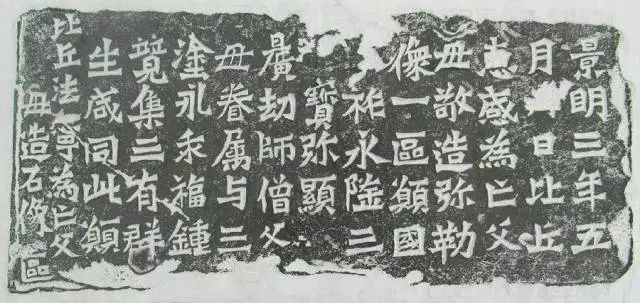 景明三年五
月日比丘
惠感為亡父
母敬造弥勒
像一區願國
祚永隆三
寶弥顯
曠劫師僧父
母眷属与三
塗永乖福鍾
竟集三有群
生咸同此願
比丘法寧為亡父
母造石像區